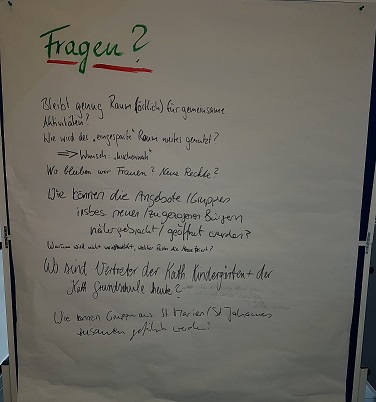 Fragen?
Bleibt genug Raum (örtlich) für gemeinsame
Aktivitäten?
Wie wird der „eingesparte" Raum weiter genutzt?
⇒ Wunsch „kirchennah"
Wo bleiben wir Frauen? Neue Rechte?
Wie können die Angebote/Gruppen
insbes. neuen/zugezogenen Bürgern
nähergebracht/geöffnet werden?
Warum wird nicht
Wo sind Vertreter der Kath Kindergärten + der
Kath Grundschule heute?
Wie können Gruppen aus St Marien/St Johannes
zusammen geführt werden?